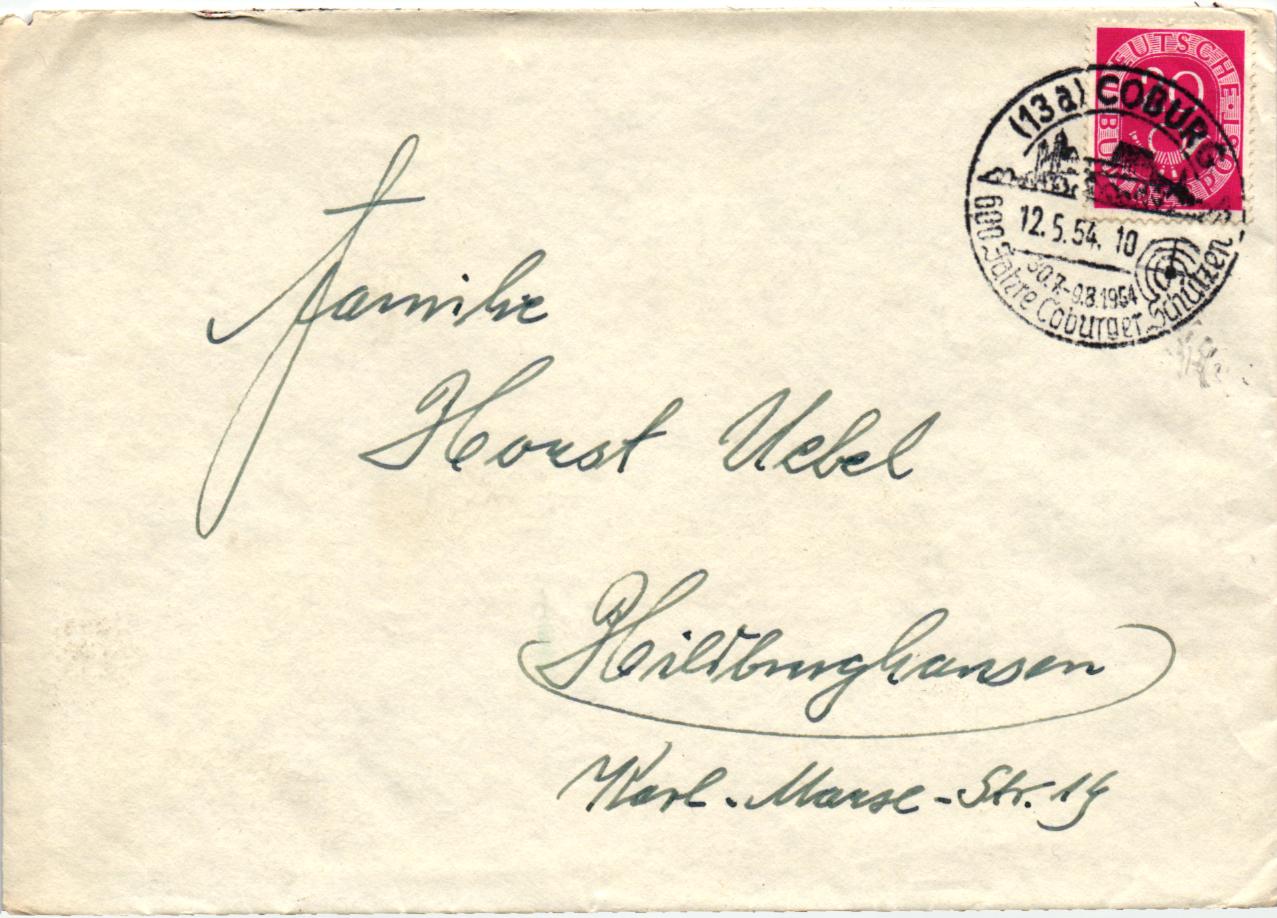 DEUTSCHE BUNDESPOST
20
(13a) COBURG
12.5.54. 10
30.7.-9.8.1954
600 Jahre Coburger Schützen
Familie
Horst Uebel
Hildburghausen
Karl-Marx-Str. 14